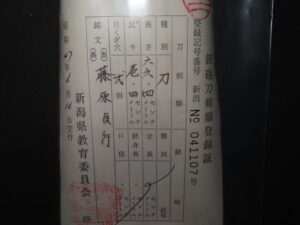 銃砲刀剣類登録証
登録記号番号 新潟 № 041107号
刀剣類
種別 刀
長さ 六六・四 センチメートル
反り 壱・四 センチメートル
目くぎ穴 弐個
銘文(表) 藤原貞行
(裏)
銃砲
種別
全長 センチメートル
銃身長 センチメートル
口径
昭和47年6月 日交付
新潟県教育委員会